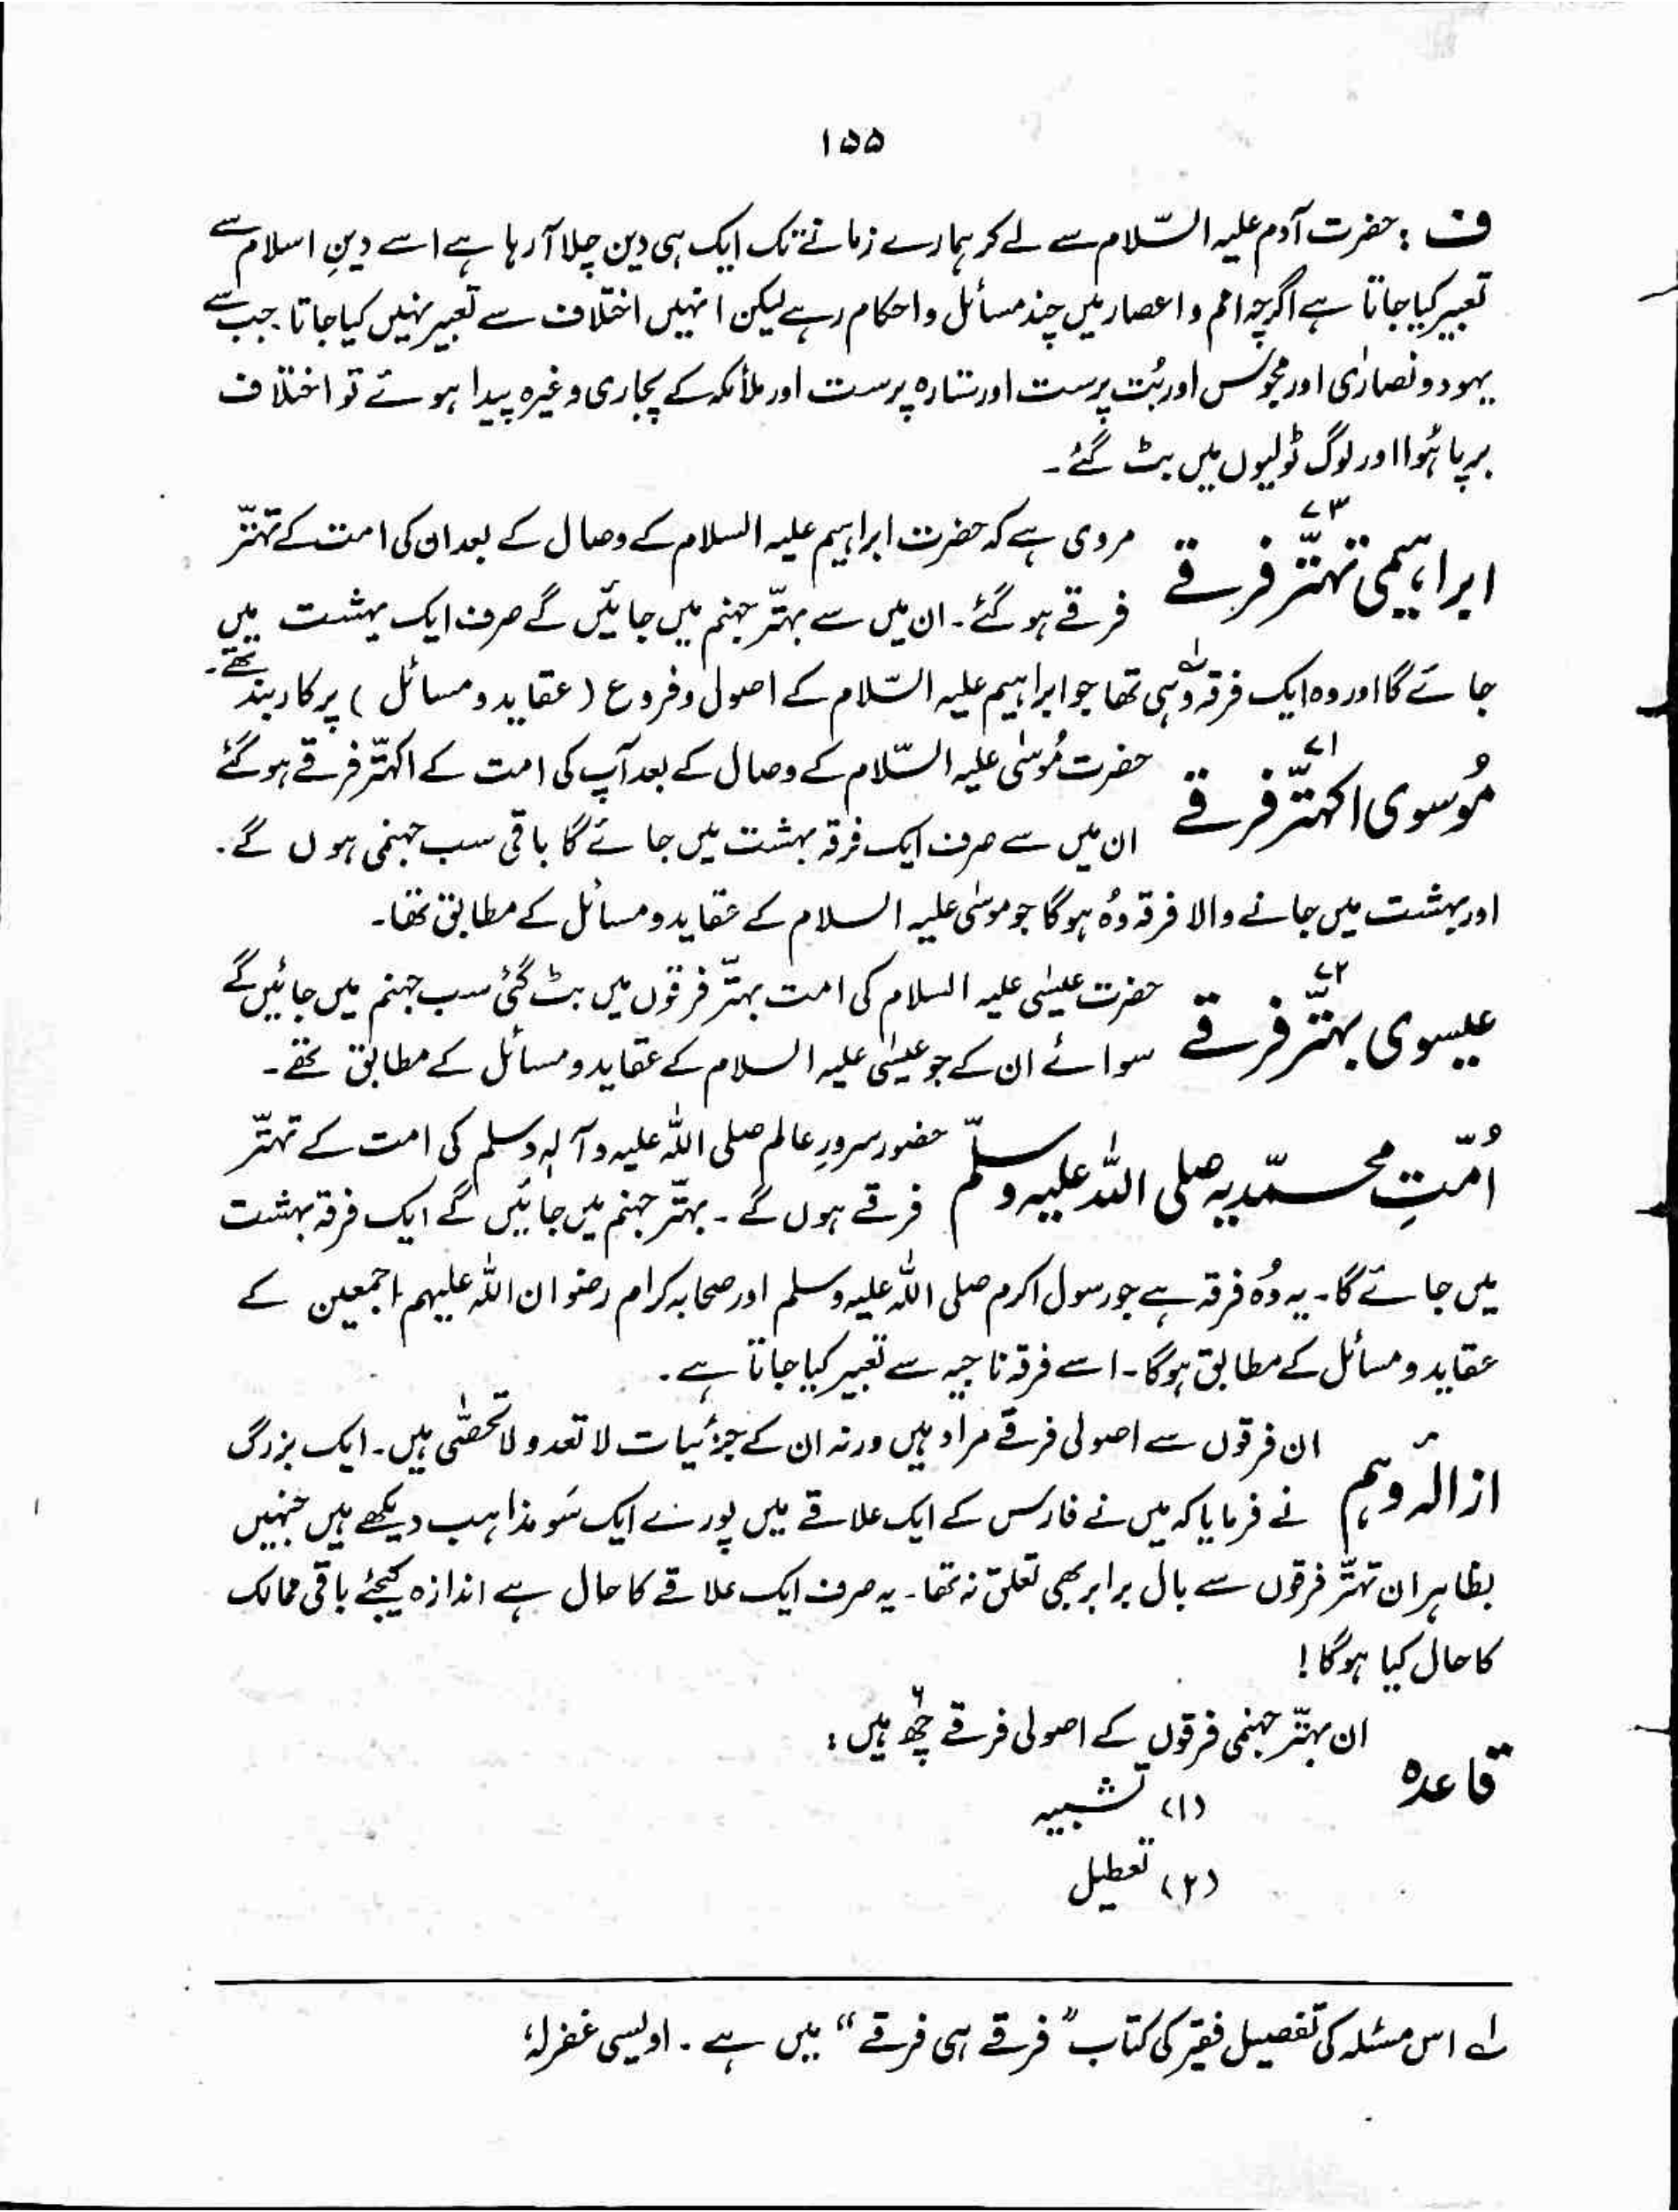 ۱۵۵
ف : حضرت آدم علیہ السّلام سے لے کر ہمارے زمانے تک ایک ہی دین چلا آ رہا ہے اسے دینِ اسلام سے
تعبیر کیا جاتا ہے اگرچہ امم و اعصار میں چند مسائل و احکام رہے لیکن انہیں اختلاف سے تعبیر نہیں کیا جاتا جب سے
یہود و نصارٰی اور مجوس اور بُت پرست اور ستارہ پرست اور ملائکہ کے پجاری وغیرہ پیدا ہوئے تو اختلاف
برپا ہُوا اور لوگ ٹولیوں میں بٹ گئے۔
ابراہیمی تہتّر فرقے ۷۳ مروی ہے کہ حضرت ابراہیم علیہ السلام کے وصال کے بعد ان کی امت کے تہتّر
فرقے ہو گئے۔ ان میں سے بہتّر جہنم میں جائیں گے صرف ایک بہشت میں
جائے گا اور وہ ایک فرقہ وہی تھا جو ابراہیم علیہ السّلام کے اصول و فروع (عقاید و مسائل) پر کاربند تھے۔
مُوسوی اکہتّر فرقے ۷۱ حضرت مُوسٰی علیہ السّلام کے وصال کے بعد آپ کی امت کے اکہتّر فرقے ہو گئے
ان میں سے صرف ایک فرقہ بہشت میں جائے گا باقی سب جہنمی ہوں گے۔
اور بہشت میں جانے والا فرقہ وُہ ہو گا جو موسٰی علیہ السلام کے عقاید و مسائل کے مطابق تھا۔
عیسوی بہتّر فرقے ۷۲ حضرت عیسٰی علیہ السلام کی امت بہتّر فرقوں میں بٹ گئی سب جہنم میں جائیں گے
سوائے ان کے جو عیسٰی علیہ السلام کے عقاید و مسائل کے مطابق تھے۔
اُمّتِ محمّدیہ صلی اللہ علیہ وسلّم حضور سرورِ عالم صلی اللہ علیہ وآلہٖ وسلم کی امت کے تہتّر
فرقے ہوں گے۔ بہتّر جہنم میں جائیں گے ایک فرقہ بہشت
میں جائے گا۔ یہ وُہ فرقہ ہے جو رسول اکرم صلی اللہ علیہ وسلم اور صحابہ کرام رضوان اللہ علیہم اجمعین کے
عقاید و مسائل کے مطابق ہو گا۔ اسے فرقہ ناجیہ سے تعبیر کیا جاتا ہے۔
ازالۂ وہم ان فرقوں سے اصولی فرقے مراد ہیں ورنہ ان کے جزئیات لا تعد و لا تحصٰی ہیں۔ ایک بزرگ
نے فرمایا کہ میں نے فارس کے ایک علاقے میں پورے ایک سَو مذاہب دیکھے ہیں جنہیں
بظاہر ان تہتّر فرقوں سے بال برابر بھی تعلق نہ تھا۔ یہ صرف ایک علاقے کا حال ہے اندازہ کیجئے باقی ممالک
کا حال کیا ہو گا!
قاعدہ ان بہتّر جہنمی فرقوں کے اصولی فرقے چھ ۶ ہیں :
(۱) تشبیہ
(۲) تعطیل
لے اس مسئلہ کی تفصیل فقیر کی کتاب "فرقے ہی فرقے" میں ہے۔ اویسی غفرلہٗ